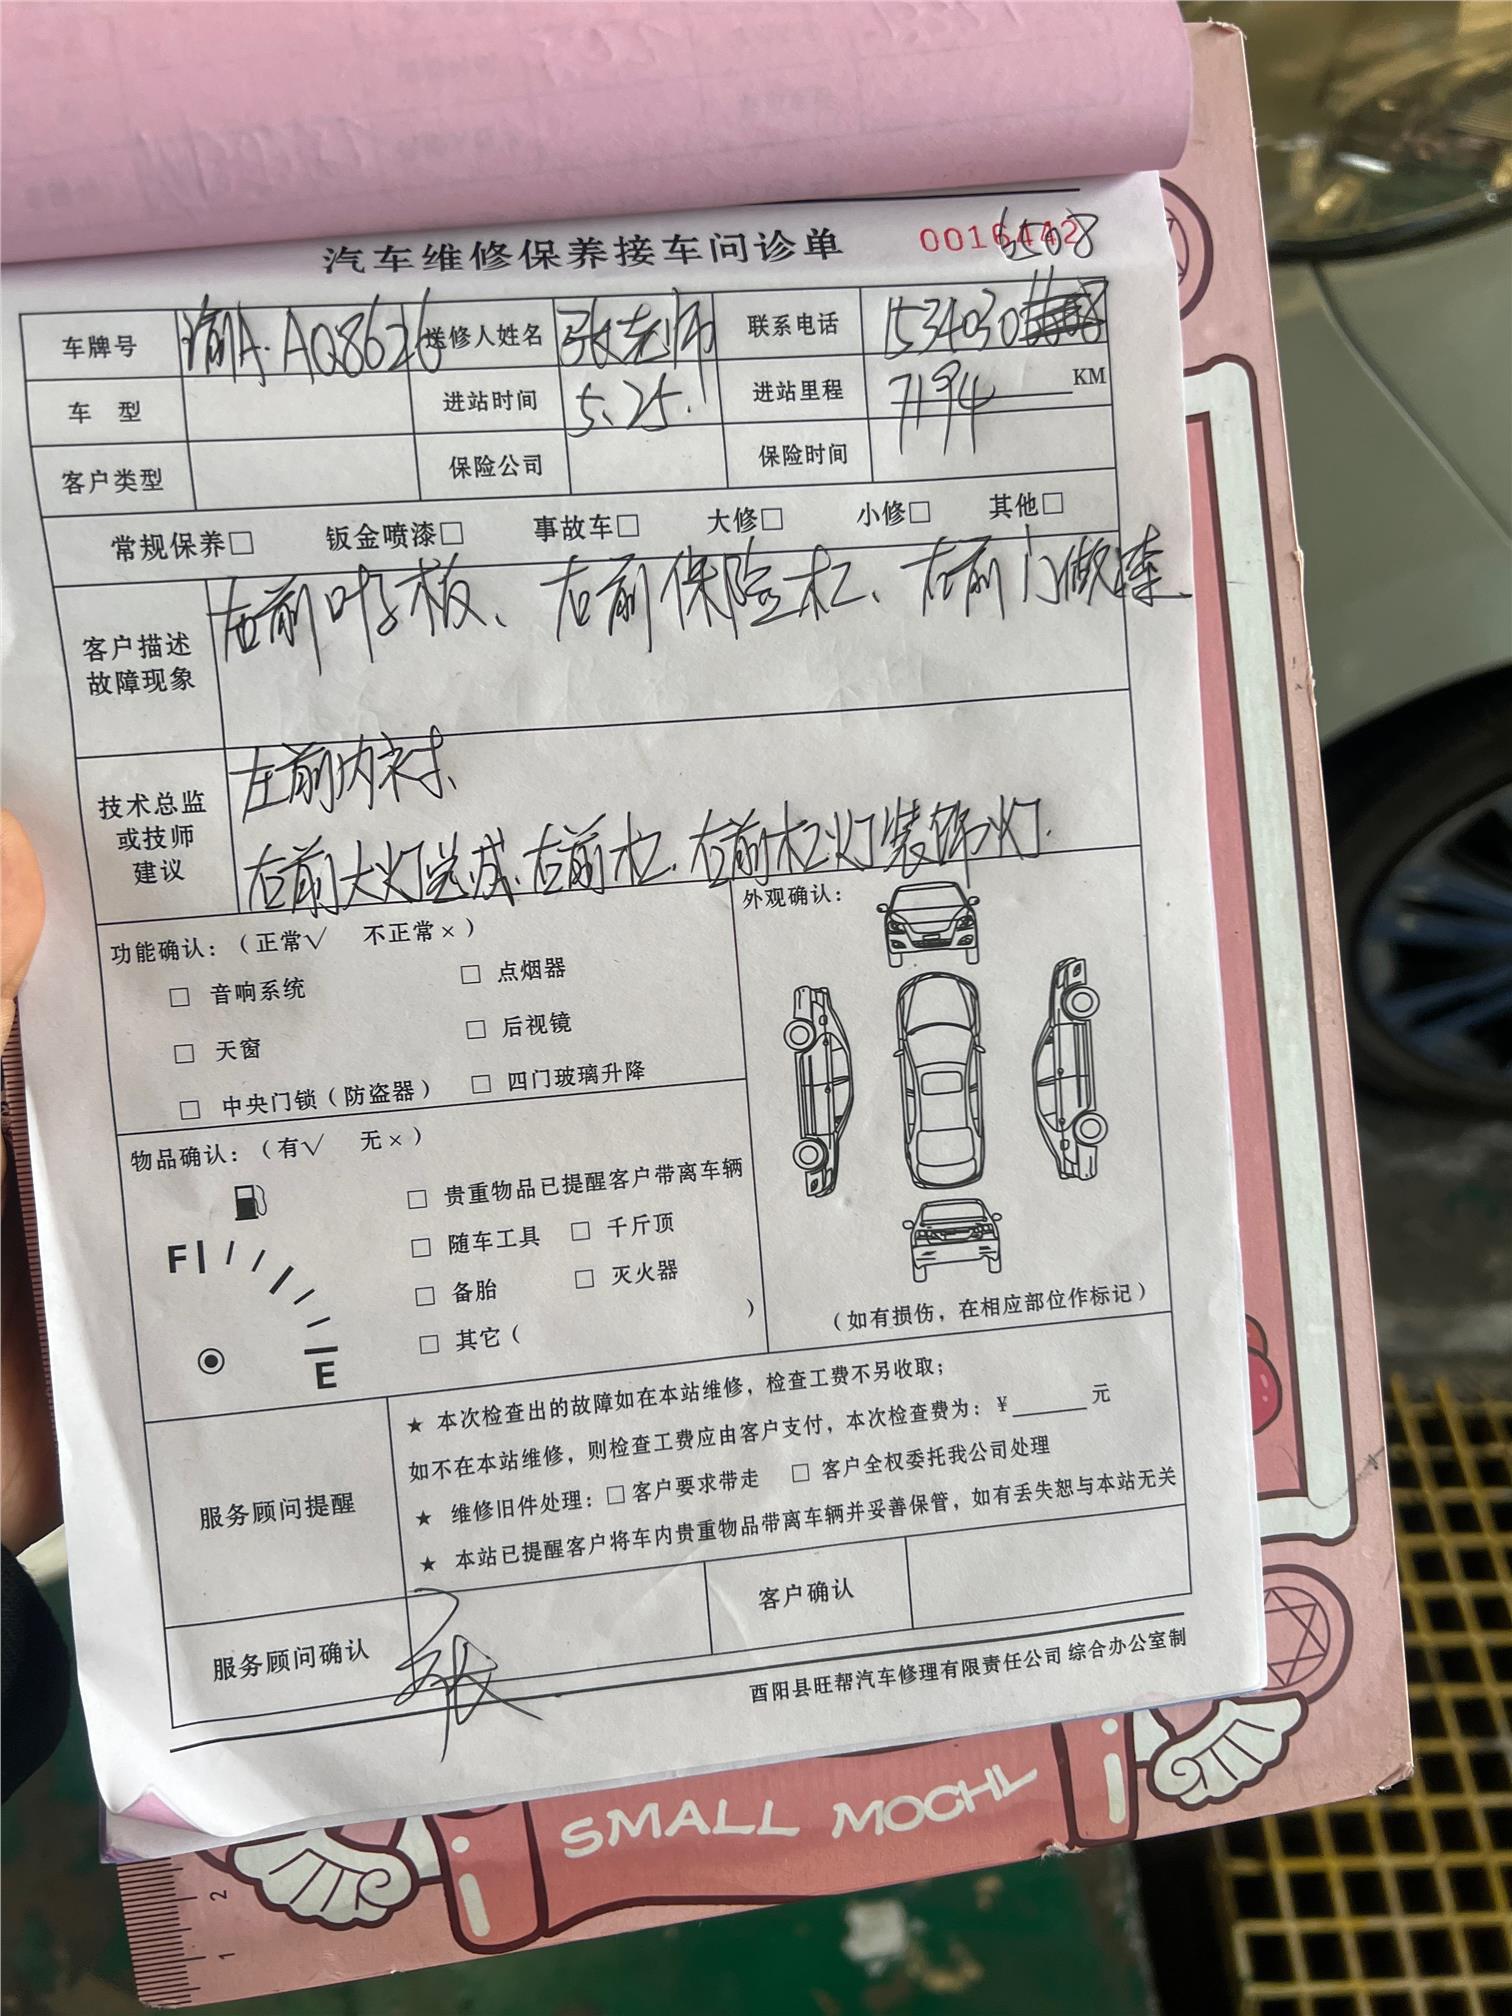 汽车维修保养接车问诊单 0016442
6508
车牌号 渝A·AQ8626 送修人姓名 张老师 联系电话 1534030
车 型 进站时间 5.25. 进站里程 7194 KM
客户类型 保险公司 保险时间
常规保养□ 钣金喷漆□ 事故车□ 大修□ 小修□ 其他□
客户描述
故障现象
右前叶子板、右前保险杠、右前门做漆
技术总监
或技师
建议
左前内衬、
右前大灯总成、右前杠、右前杠灯装饰灯.
功能确认：（正常√ 不正常×）
□ 音响系统 □ 点烟器
□ 天窗 □ 后视镜
□ 中央门锁（防盗器） □ 四门玻璃升降
外观确认：
（如有损伤，在相应部位作标记）
物品确认：（有√ 无×）
F
E
□ 贵重物品已提醒客户带离车辆
□ 随车工具 □ 千斤顶
□ 备胎 □ 灭火器
□ 其它（ ）
服务顾问提醒
★ 本次检查出的故障如在本站维修，检查工费不另收取；
如不在本站维修，则检查工费应由客户支付，本次检查费为：¥______元
★ 维修旧件处理：□ 客户要求带走 □ 客户全权委托我公司处理
★ 本站已提醒客户将车内贵重物品带离车辆并妥善保管，如有丢失恕与本站无关
服务顾问确认 客户确认
酉阳县旺帮汽车修理有限责任公司 综合办公室制
SMALL MOCHI
2
1